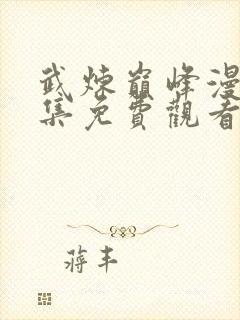 武煉巔峰漫
集免費觀看
蔣丰